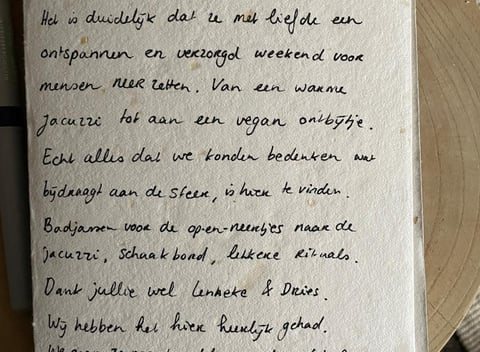 Het is duidelijk dat ze met liefde een
ontspannen en verzorgd weekend voor
mensen neerzetten. Van een warme
jacuzzi tot aan een vegan ontbijtje.
Echt alles dat we konden bedenken wat
bijdraagt aan de sfeer, is hier te vinden.
Badjassen voor de op-en-neertjes naar de
jacuzzi, schaakbord, lekkere rituals.
Dank jullie wel Lenneke & Dries.
Wij hebben het hier heerlijk gehad.